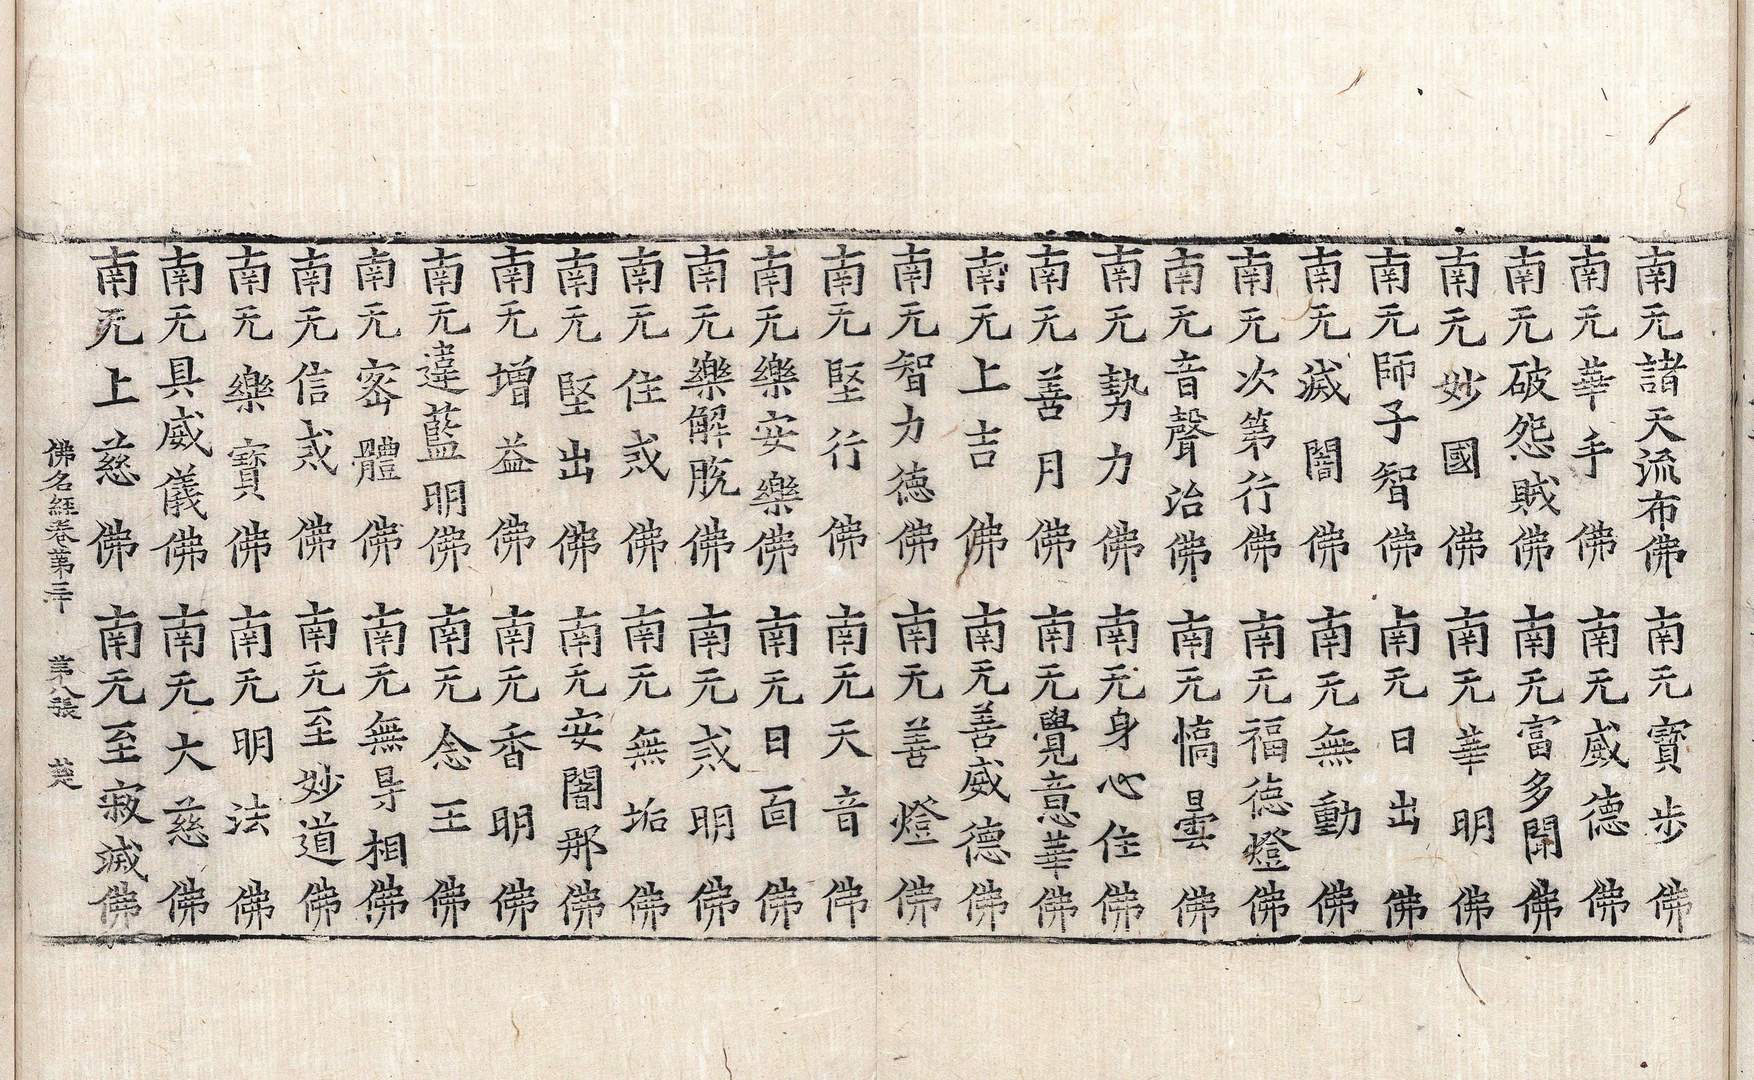 南无諸天流布佛 南无寶步佛
南无華手佛 南无威德佛
南无破怨賊佛 南无富多聞佛
南无妙國佛 南无華明佛
南无師子智佛 南无日出佛
南无滅闇佛 南无無動佛
南无次第行佛 南无福德燈佛
南无音聲治佛 南无憍曇佛
南无勢力佛 南无身心住佛
南无善月佛 南无覺意華佛
南无上吉佛 南无善威德佛
南无智力德佛 南无善燈佛
南无堅行佛 南无天音佛
南无樂安樂佛 南无日面佛
南无樂解脫佛 南无戒明佛
南无住戒佛 南无無垢佛
南无堅出佛 南无安闍那佛
南无增益佛 南无香明佛
南无違藍明佛 南无念王佛
南无密體佛 南无無㝵相佛
南无信戒佛 南无至妙道佛
南无樂寶佛 南无明法佛
南无具威儀佛 南无大慈佛
南无上慈佛 南无至寂滅佛
佛名經卷第三十 第八張 楚